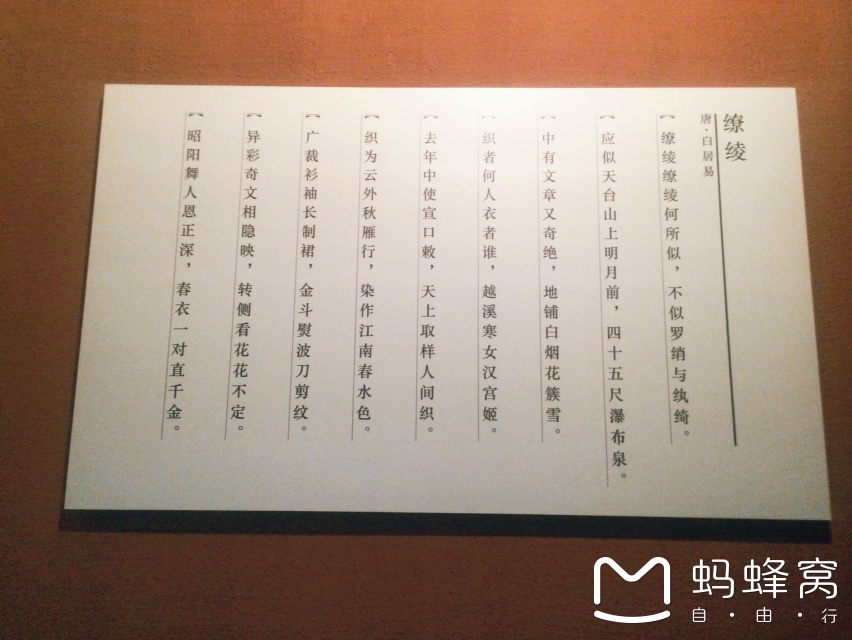 缭绫
唐·白居易
缭绫缭绫何所似，不似罗绡与纨绮。
应似天台山上明月前，四十五尺瀑布泉。
中有文章又奇绝，地铺白烟花簇雪。
织者何人衣者谁，越溪寒女汉宫姬。
去年中使宣口敕，天上取样人间织。
织为云外秋雁行，染作江南春水色。
广裁衫袖长制裙，金斗熨波刀剪纹。
异彩奇文相隐映，转侧看花花不定。
昭阳舞人恩正深，春衣一对直千金。
蚂蜂窝
自·由·行